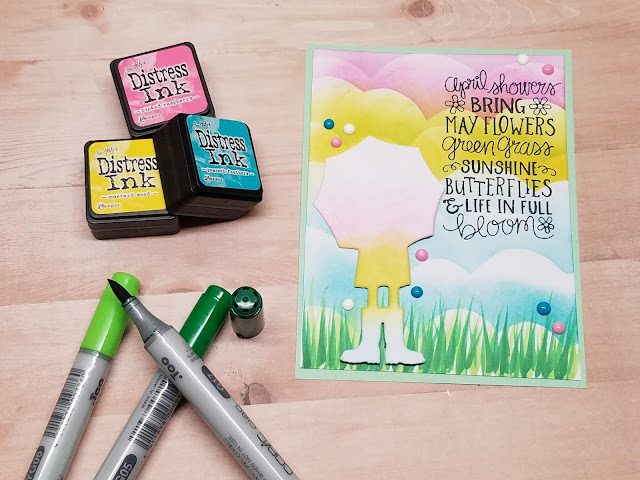 Distress
Ink
picked raspberry
Distress
Ink
mustard seed
Distress
Ink
peacock feathers
april showers
BRING
MAY FLOWERS
green grass
SUNSHINE
BUTTERFLIES
& LIFE IN FULL
bloom
YG06
G05
copic ciao